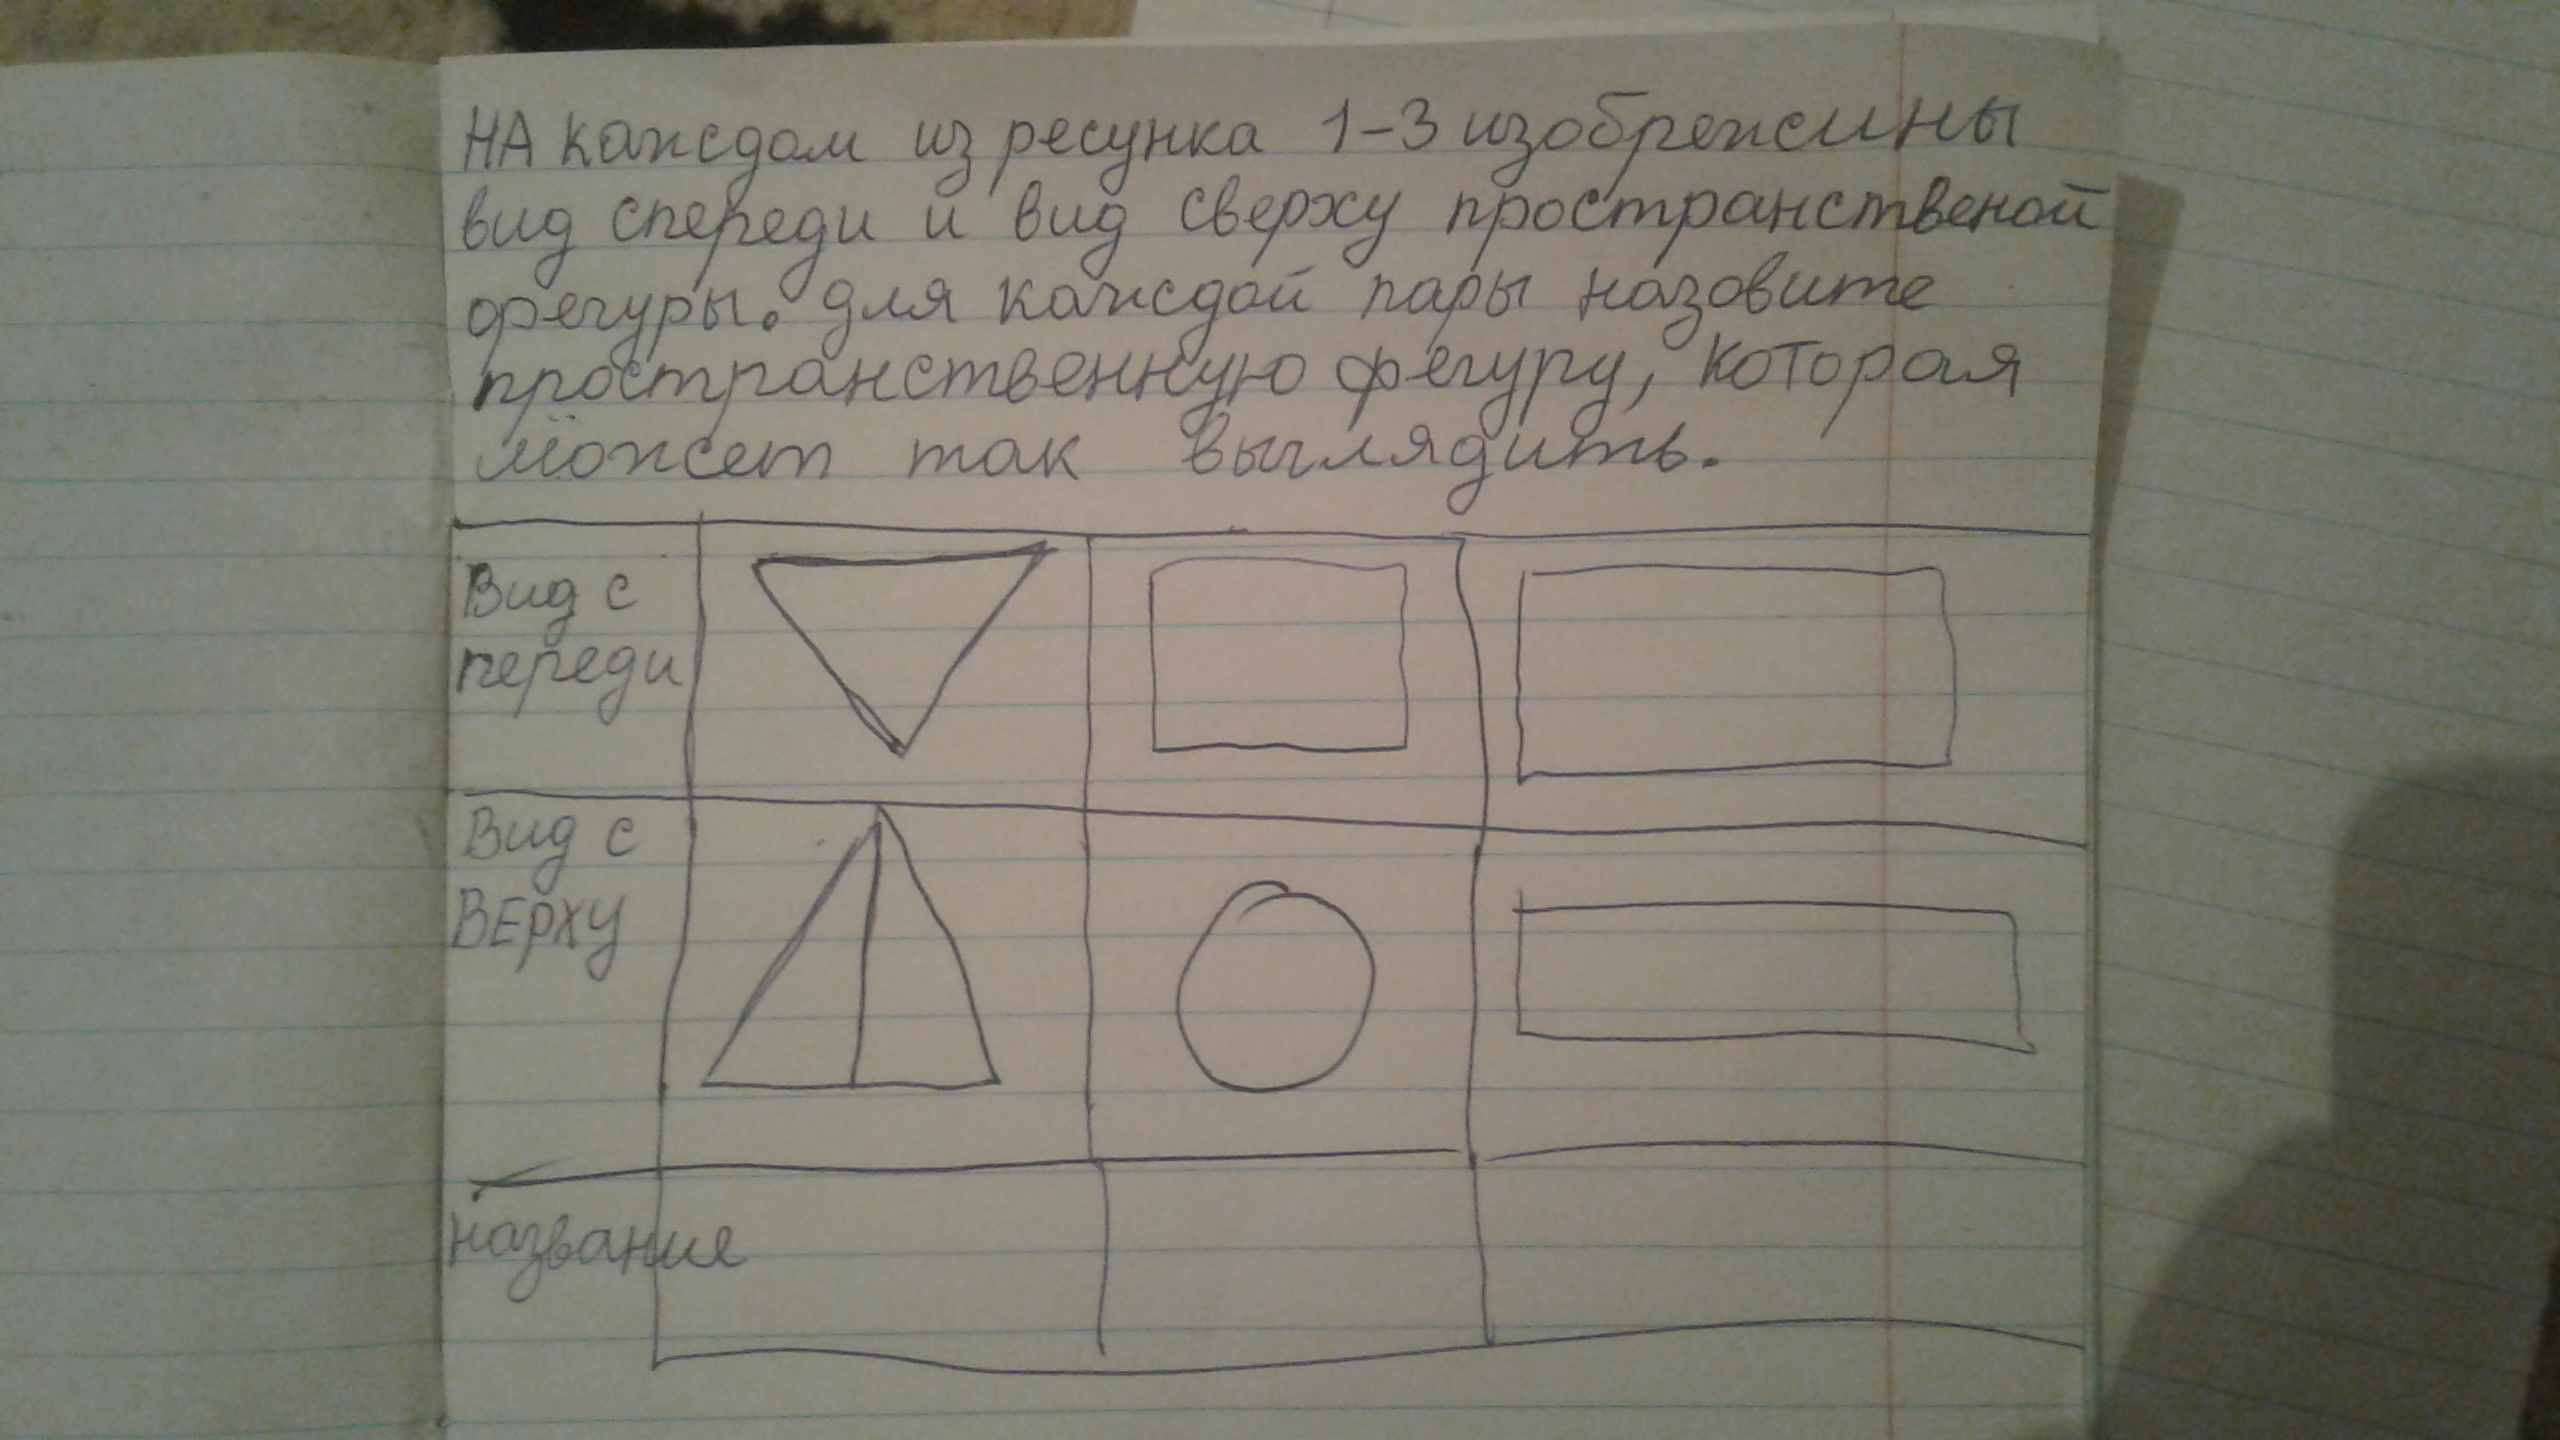 НА каждом из ресунка 1-3 изобрежины
вид спереди и вид сверху простран­ственой
фегуры. для каждой пары назовите
пространственную фегуру, которая
может так выглядить.
Вид с
переди
Вид с
ВЕРХУ
название